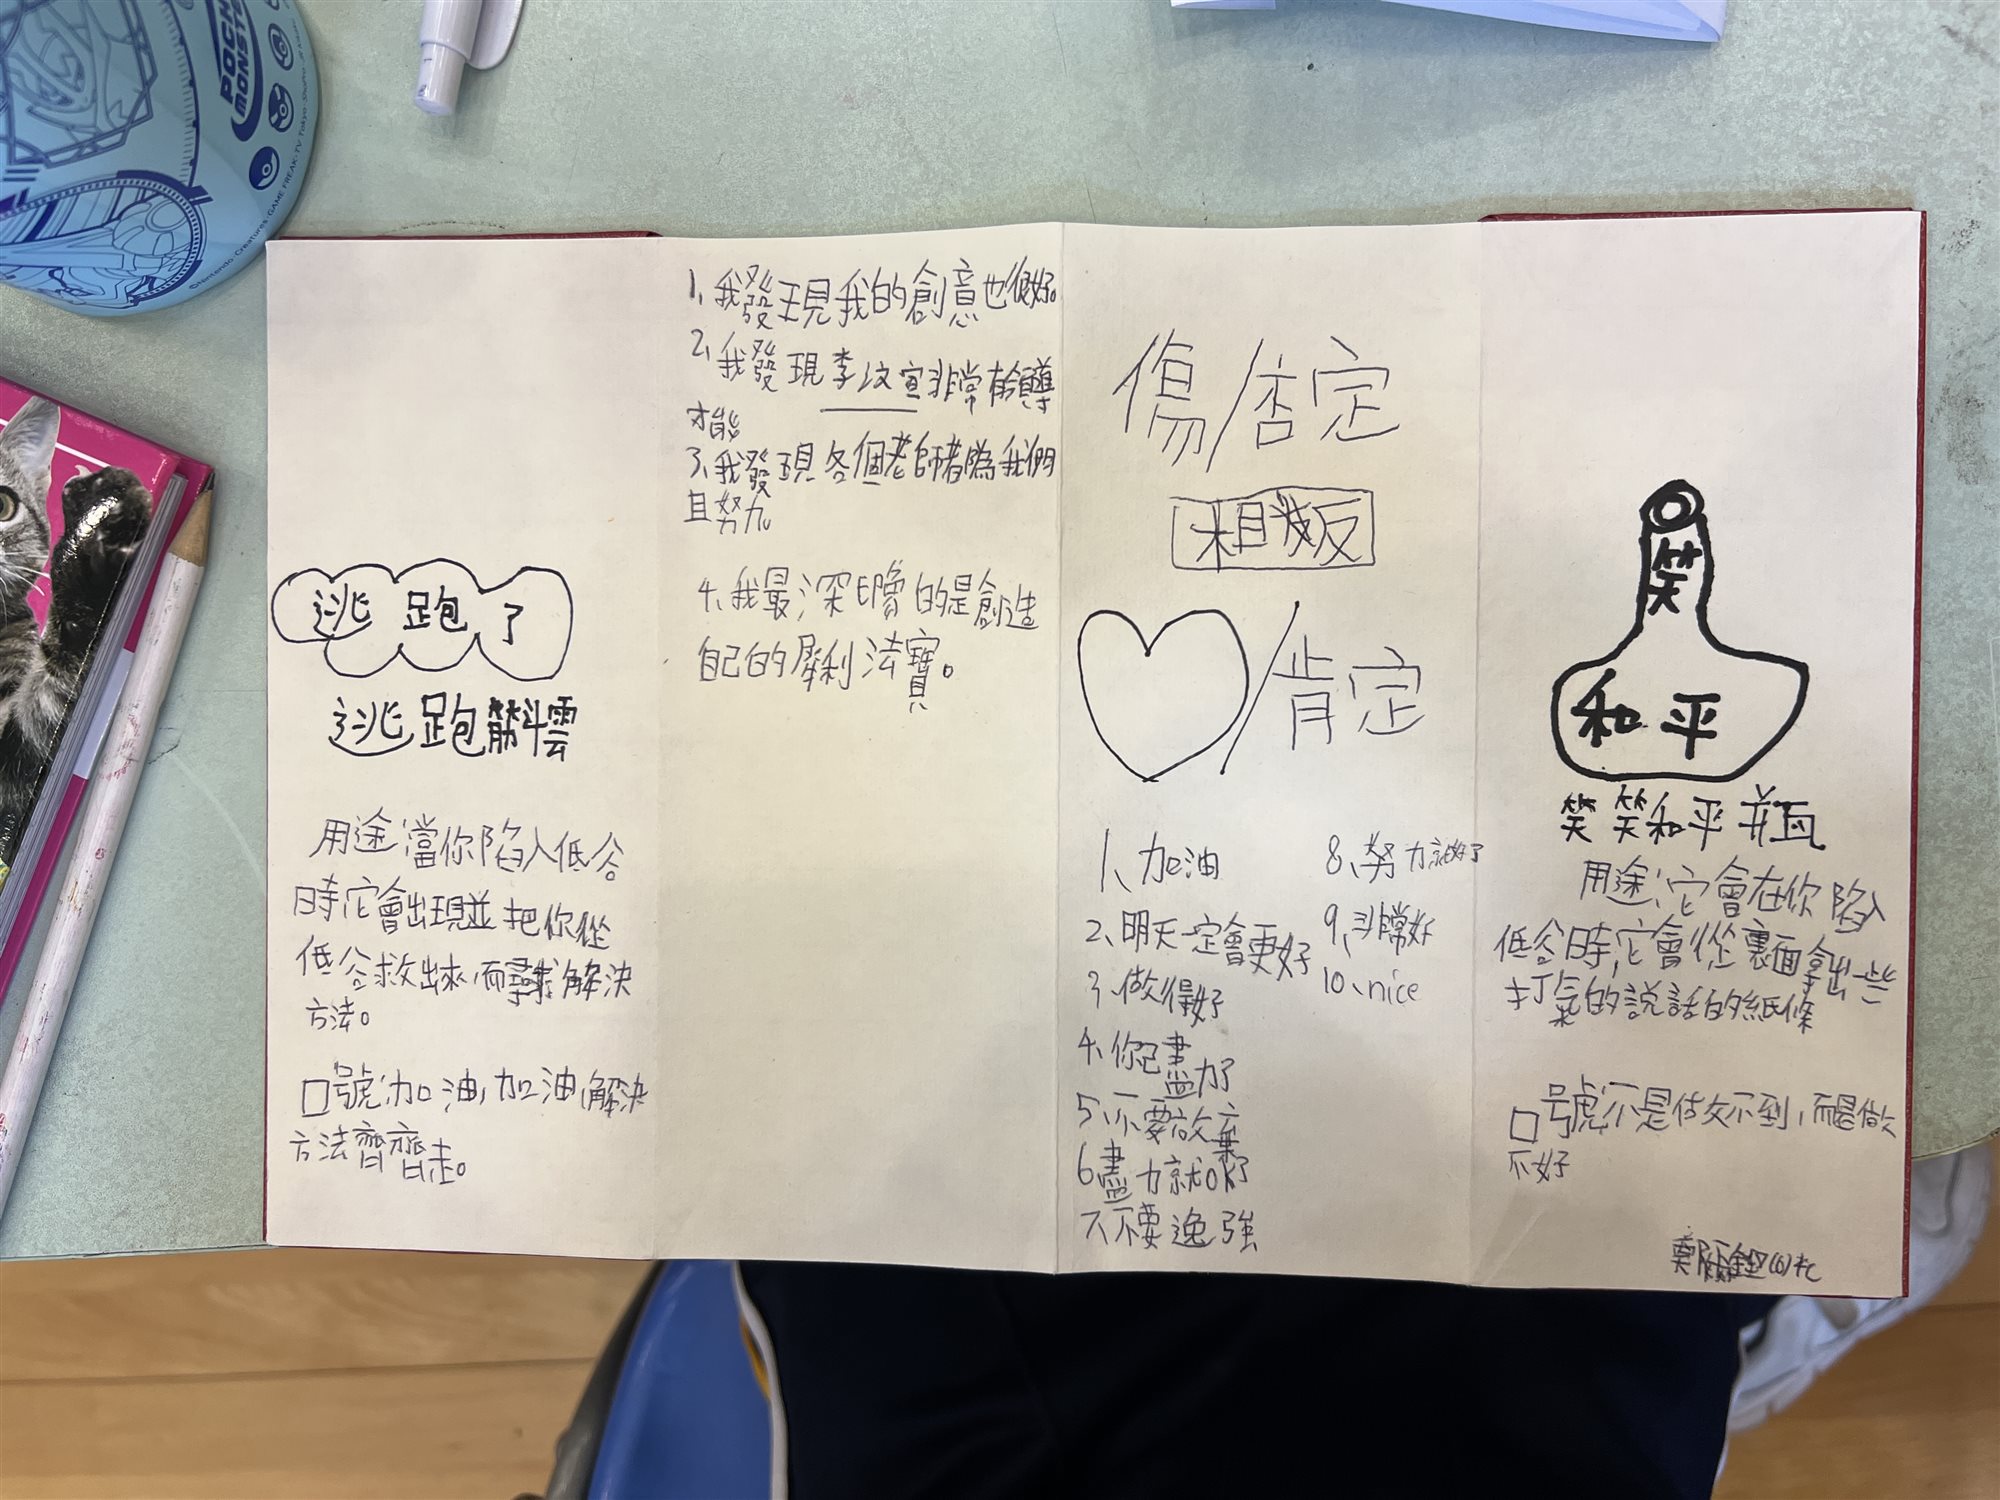 POCK
MONSTE
©Nintendo·Creatures·GAME FREAK·TV Tokyo·ShoPro·JR Kikaku
逃跑了
逃跑筋斗雲
用途:當你陷入低谷
時,它會出現並把你從
低谷救出來,而尋求解決
方法。
口號:加油,加油,解決
方法齊齊走。
1、我發現我的創意也很好。
2、我發現李汶宣非常有領導
才能
3、我發現各個老師都為我們
且努力
4、我最深印象的是創造
自己的犀利法寶。
傷/否定
相反
/肯定
1、加油
2、明天一定會更好
3、做得好
4、你已盡力了
5、不要放棄
6盡力就OK了
7不要逸強
8、努力就好了
9、非常好
10、nice
笑
和平
笑笑和平瓶
用途:它會在你陷入
低谷時,它會從裏面拿出一些
打氣的說話的紙條
口號:不是做不到,而是做
不好
鄭